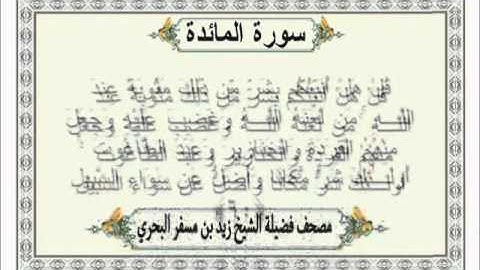 سورة المائدة
قُلْ هَلْ أُنَبِّئُكُم بِشَرٍّ مِّن ذَٰلِكَ مَثُوبَةً عِندَ
اللَّهِ مَن لَّعَنَهُ اللَّهُ وَغَضِبَ عَلَيْهِ وَجَعَلَ
مِنْهُمُ الْقِرَدَةَ وَالْخَنَازِيرَ وَعَبَدَ الطَّاغُوتَ
أُولَٰئِكَ شَرٌّ مَّكَانًا وَأَضَلُّ عَن سَوَاءِ السَّبِيلِ
مصحف فضيلة الشيخ زيد بن مسفر البحري